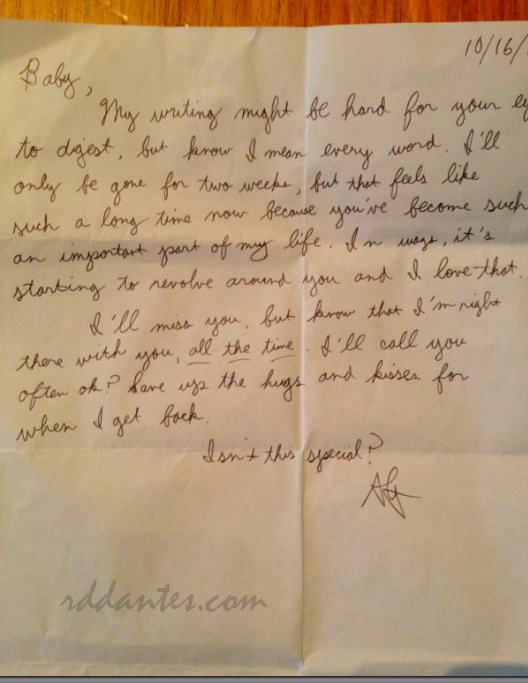 10/16/
Baby,
My writing might be hard for your ey
to digest, but know I mean every word. I'll
only be gone for two weeks, but that feels like
such a long time now because you've become such
an important part of my life. In ways, it's
starting to revolve around you and I love that.
I'll miss you, but know that I'm right
there with you, all the time. I'll call you
often ok? Save up the hugs and kisses for
when I get back.
Isn't this special?
rddantes.com